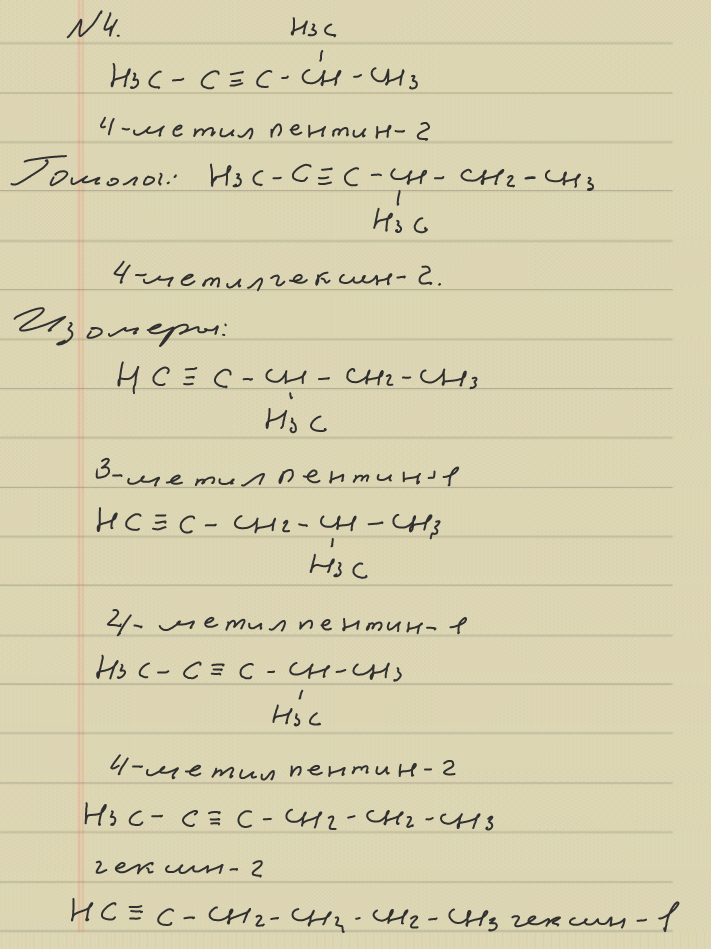 №4. H3C
H3C - C ≡ C - CH - CH3
4-метилпентин-2
Гомолог: H3C - C ≡ C - CH - CH2 - CH3
H3C
4-метилгексин-2.
Изомеры:
HC ≡ C - CH - CH2 - CH3
H3C
3-метилпентин-1
HC ≡ C - CH2 - CH - CH3
H3C
4-метилпентин-1
H3C - C ≡ C - CH - CH3
H3C
4-метилпентин-2
H3C - C ≡ C - CH2 - CH2 - CH3
гексин-2
HC ≡ C - CH2 - CH2 - CH2 - CH3 гексин-1